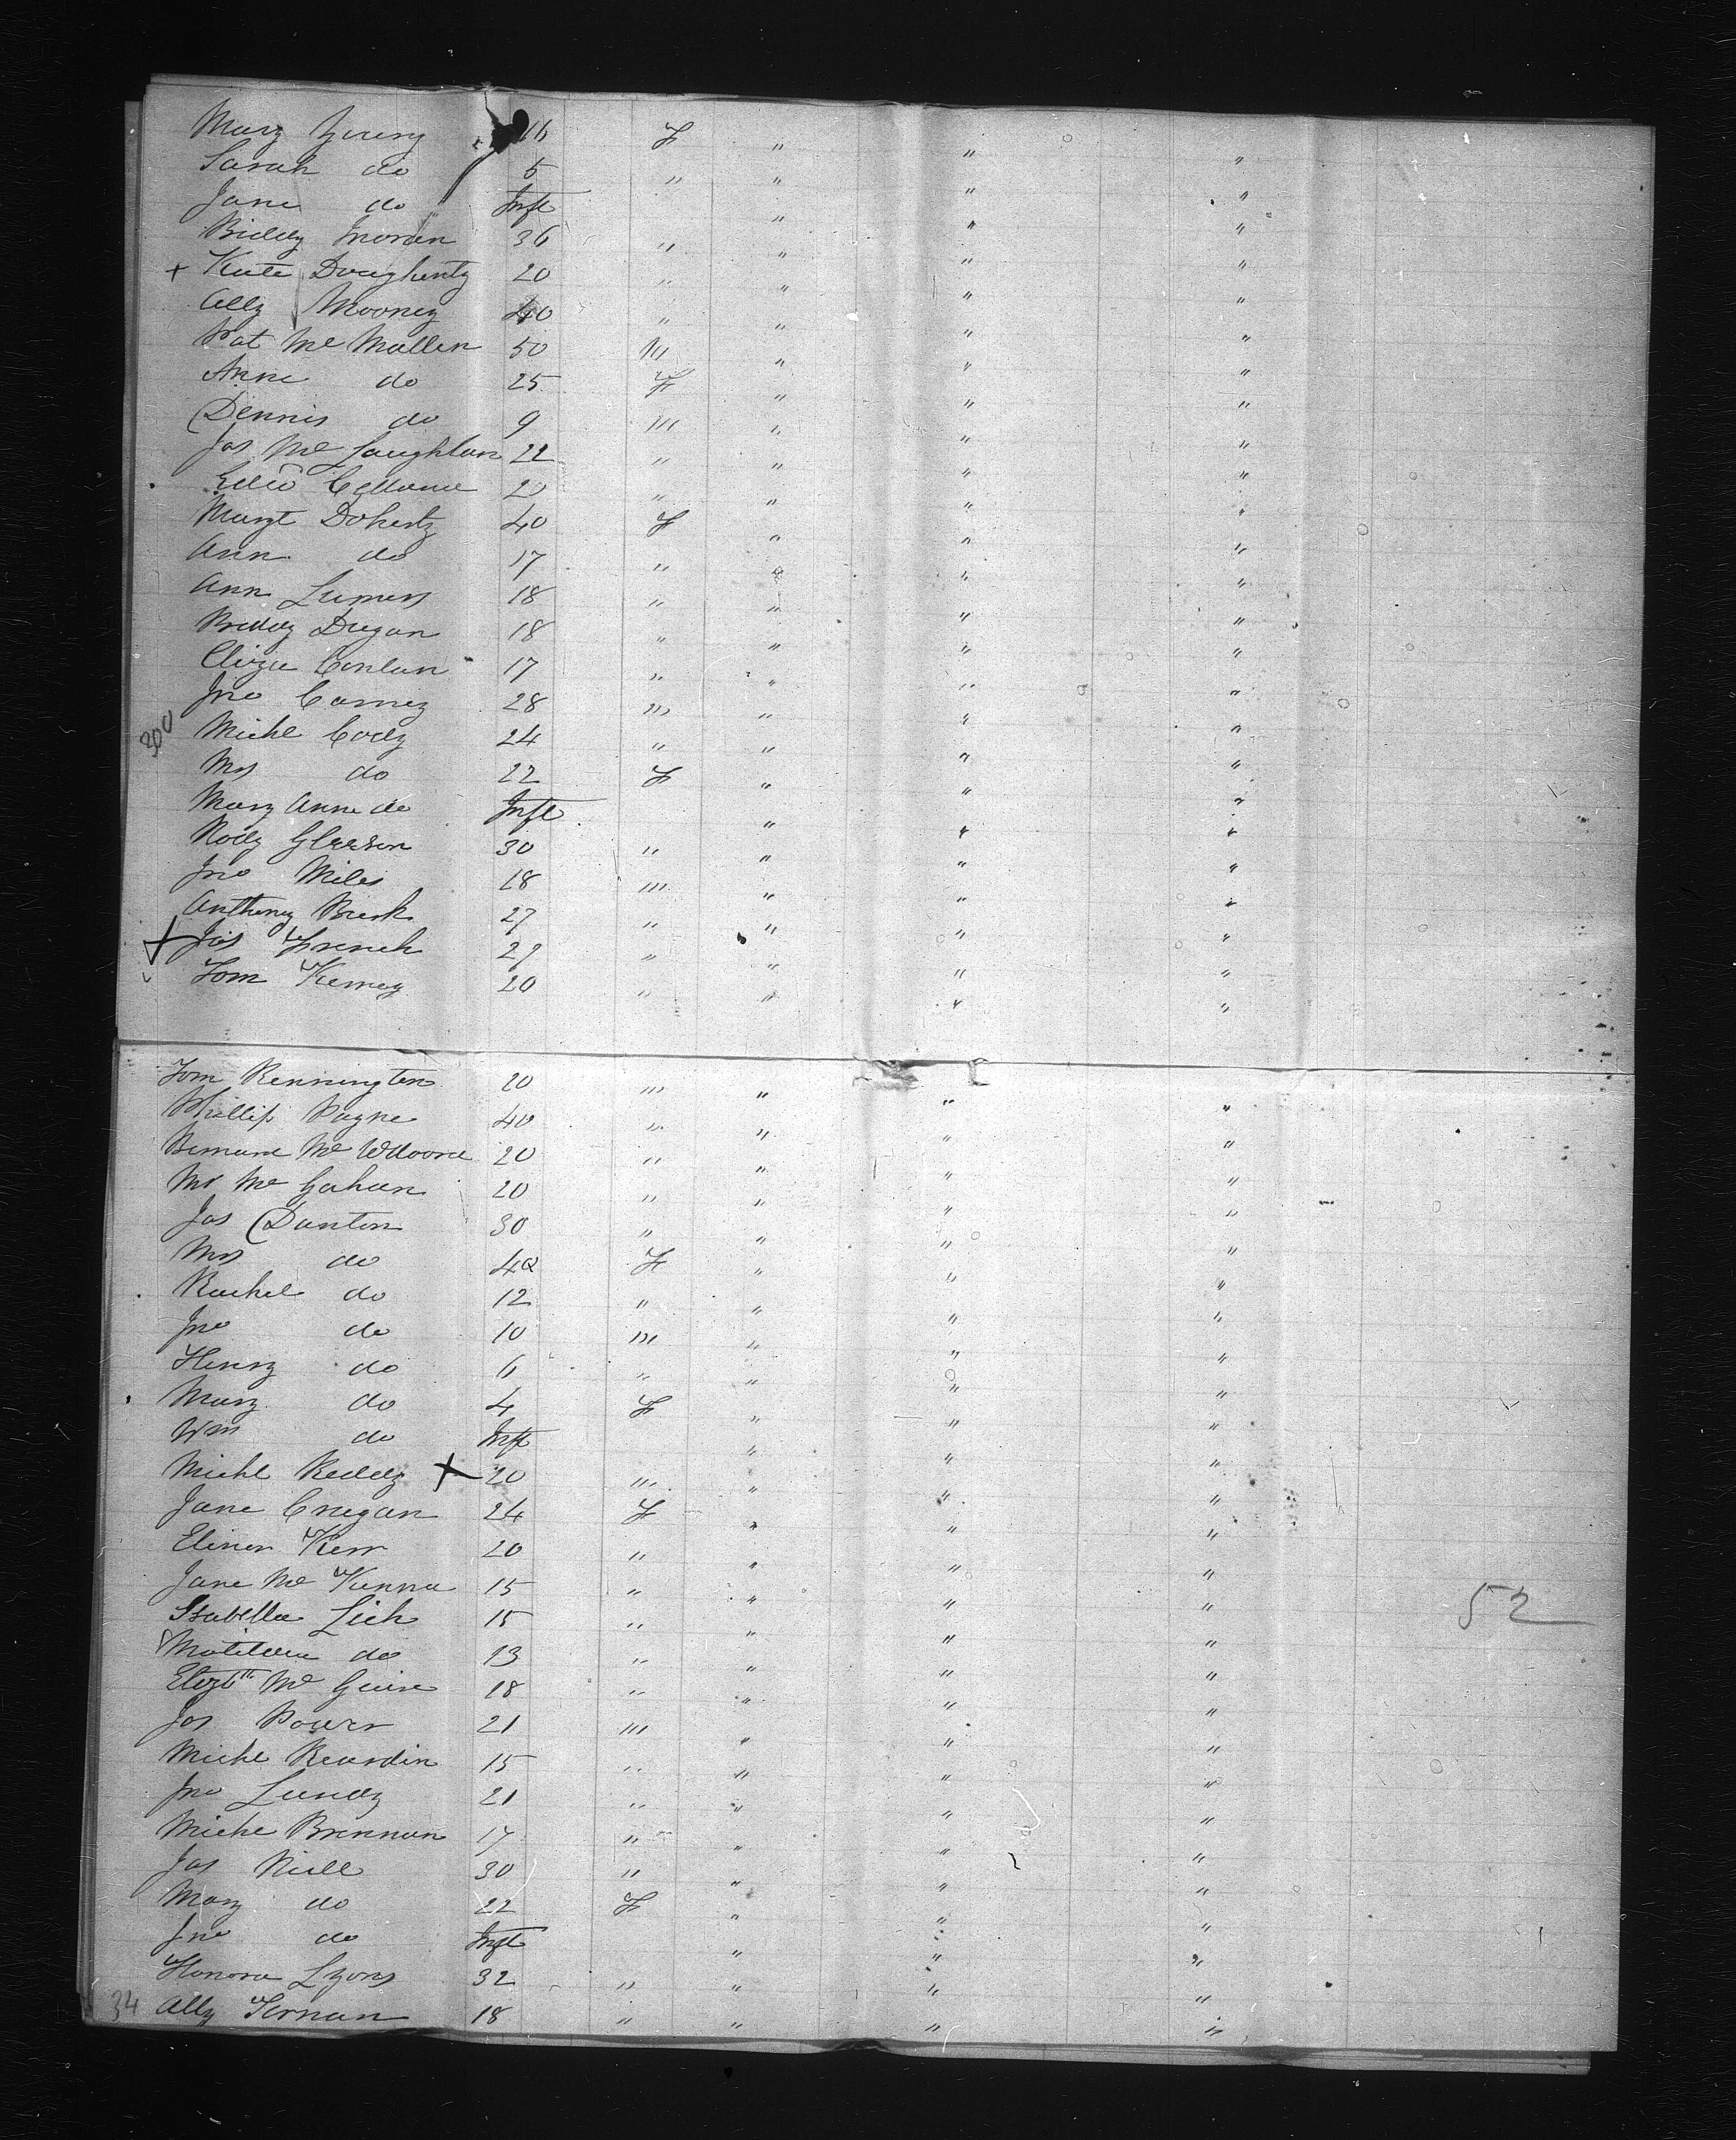 Mary Young 26 F " " "
Sarah do 5 " " " "
Jane do Inft " " "
Biddy Moran 36 " " " "
+ Kate Dougherty 20 " " " "
Ally Mooney 40 " " " "
Pat Mc Mullen 50 M " " "
Anne do 25 F " " "
Dennis do 9 M " " "
Jas Mc Laughlan 22 " " " "
20 " " " "
Margt Doherty 40 F " " "
Ann do 17 " " " "
Ann 18 " " " "
Biddy Dugan 18 " " " "
Eliza Conlan 17 " " " "
Jno Carney 28 M " " "
300 Michl Cody 24 " " " "
Mrs do 22 F " " "
Mary Anne do Inft " " "
Rody Gleeson 30 " " " "
Jno Miles 18 M " " "
Anthony 27 " " " "
+ Jas French 27 " " " "
Tom 20 " " " "
Tom Rennington 20 M " " "
Phillip Payne 40 " " " "
Bernard Mc 20 " " " "
Mr Mc Gahan 20 " " " "
Jas Danton 30 " " " "
Mrs do 40 F " " "
Rachel do 12 " " " "
Jno do 10 M " " "
Henry do 6 " " " "
Mary do 4 F " " "
Wm do Inft " " "
Michl Reddy + 20 M " " "
Jane Cregan 24 F " " "
Elinor Kerr 20 " " " "
Jane Mc Kenna 15 " " " "
Isabella 15 " " " "
52
Matilda do 13 " " " "
Elizbth Mc Guire 18 " " " "
Jas Power 21 M " " "
Michl Reardin 15 " " " "
Jno Lundy 21 " " " "
Michl Brennan 17 " " " "
Jas Niell 30 " " " "
Mary do 22 F " " "
Jno do Inft " " "
Honora Lyons 32 " " " "
34 Ally Ternan 18 " " " "